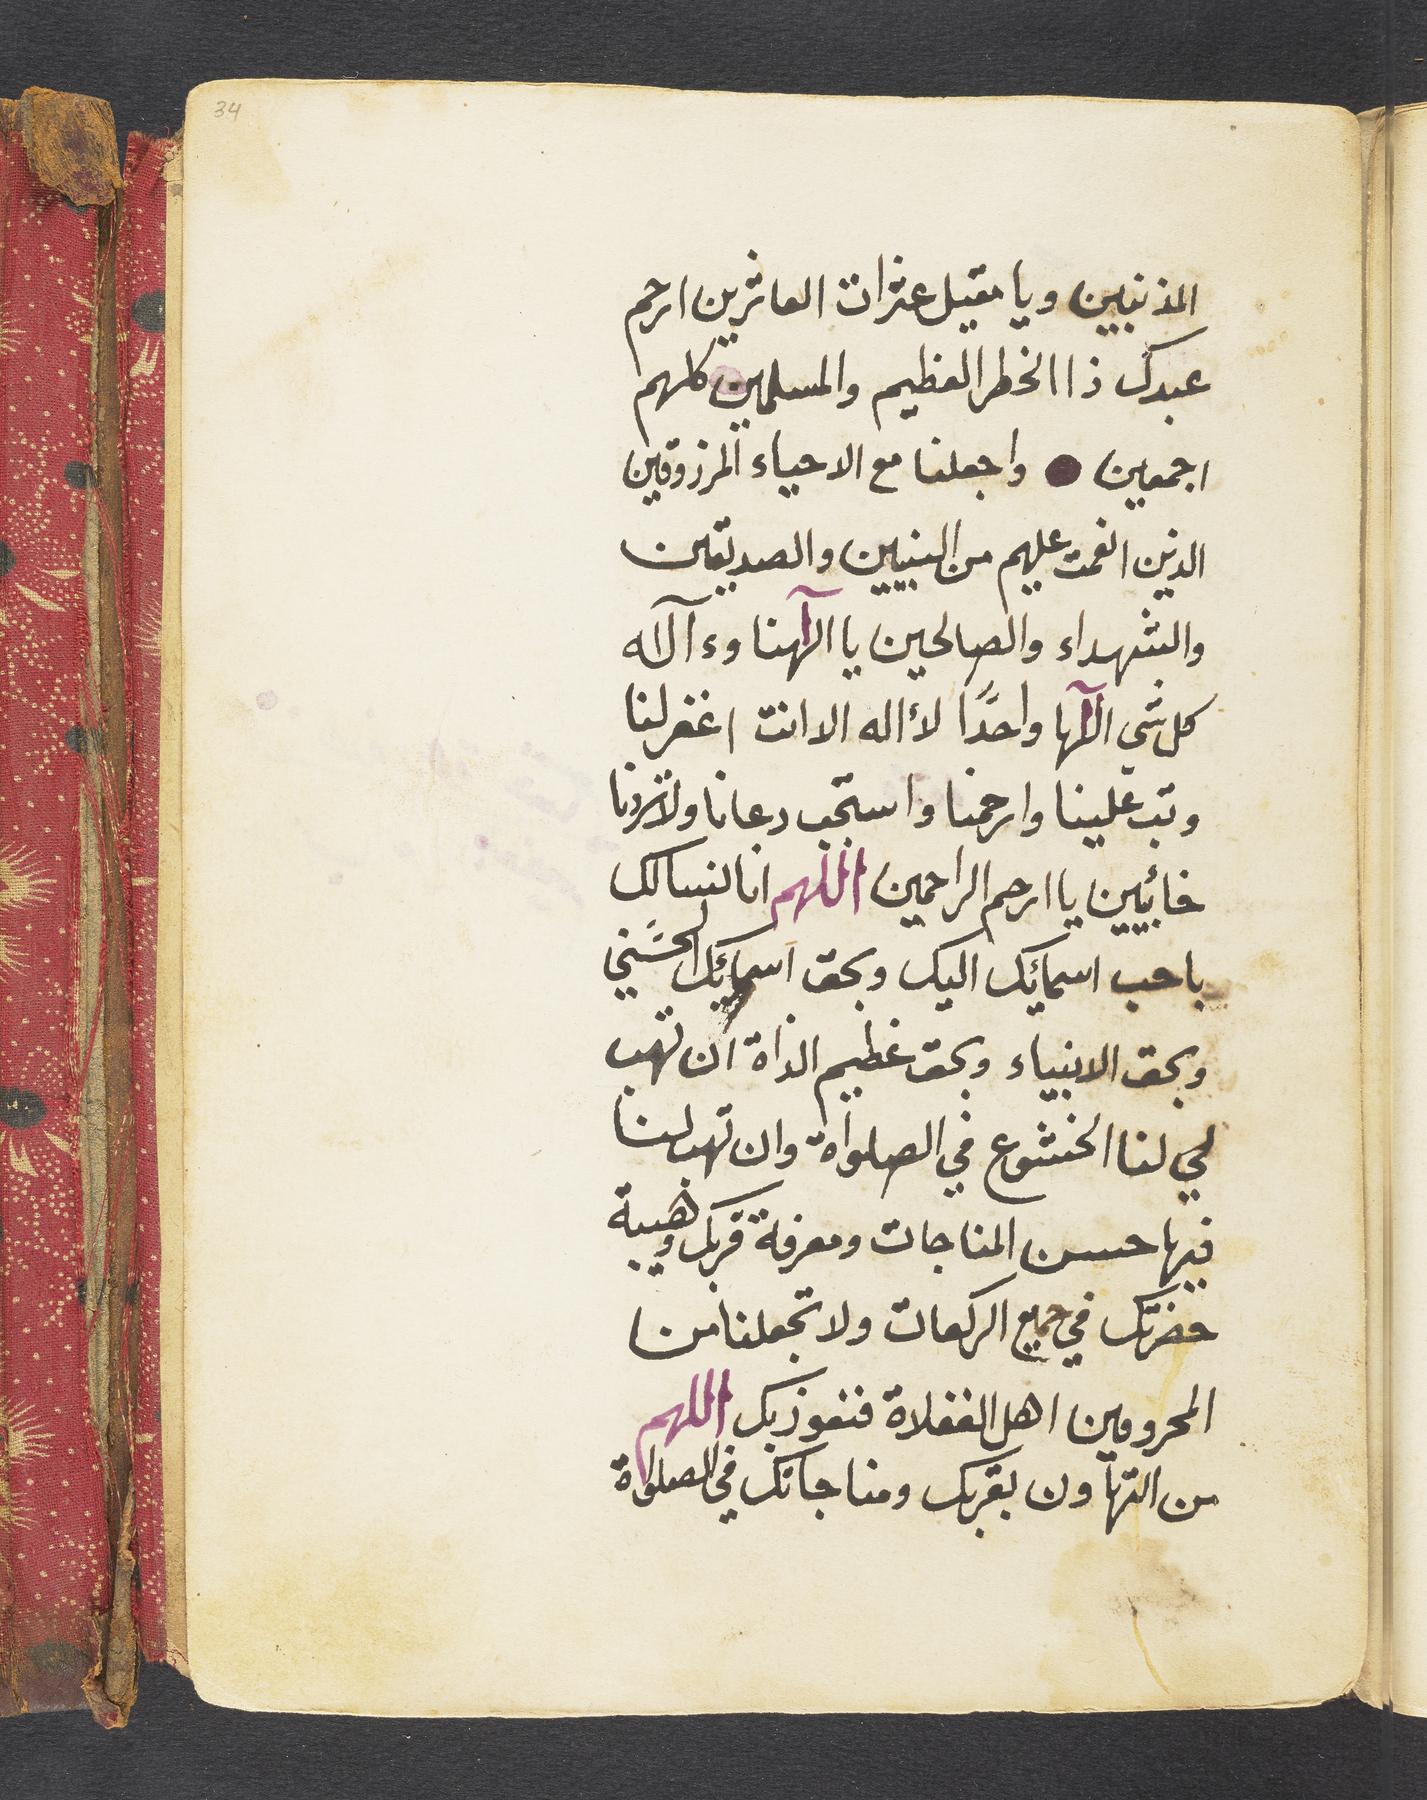 34
المذنبين ويا مقيل عثرات العاثرين ارحم
عبدك ذا الخطر العظيم والمسلمين كلهم
اجمعين واجعلنا مع الاحياء المرزوقين
الذين انعمت عليهم من النبيين والصديقين
والشهداء والصالحين يا الآهنا وءآلآه
كل شي الآها واحدًا لاأله الا انت اغفر لنا
وتب علينا وارحمنا واستجب دعانا ولا تردنا
خائبين يا ارحم الراحمين اللهم انا لنسالك
باحب اسمائك اليك وبحق اسمائك الحسني
وبحق الانبياء وبحق عظيم الذاة ان تهب
لي لنا الخشوع في الصلواة وان تهب لنا
فيها حسن المناجات ومعرفة قربك وهيبة
حضرتك في جميع الركعات ولا تجعلنا من
المحرومين اهل الغفلاة فنعوذ بك اللهم
من التهاون بقربك ومناجاتك في الصلواة